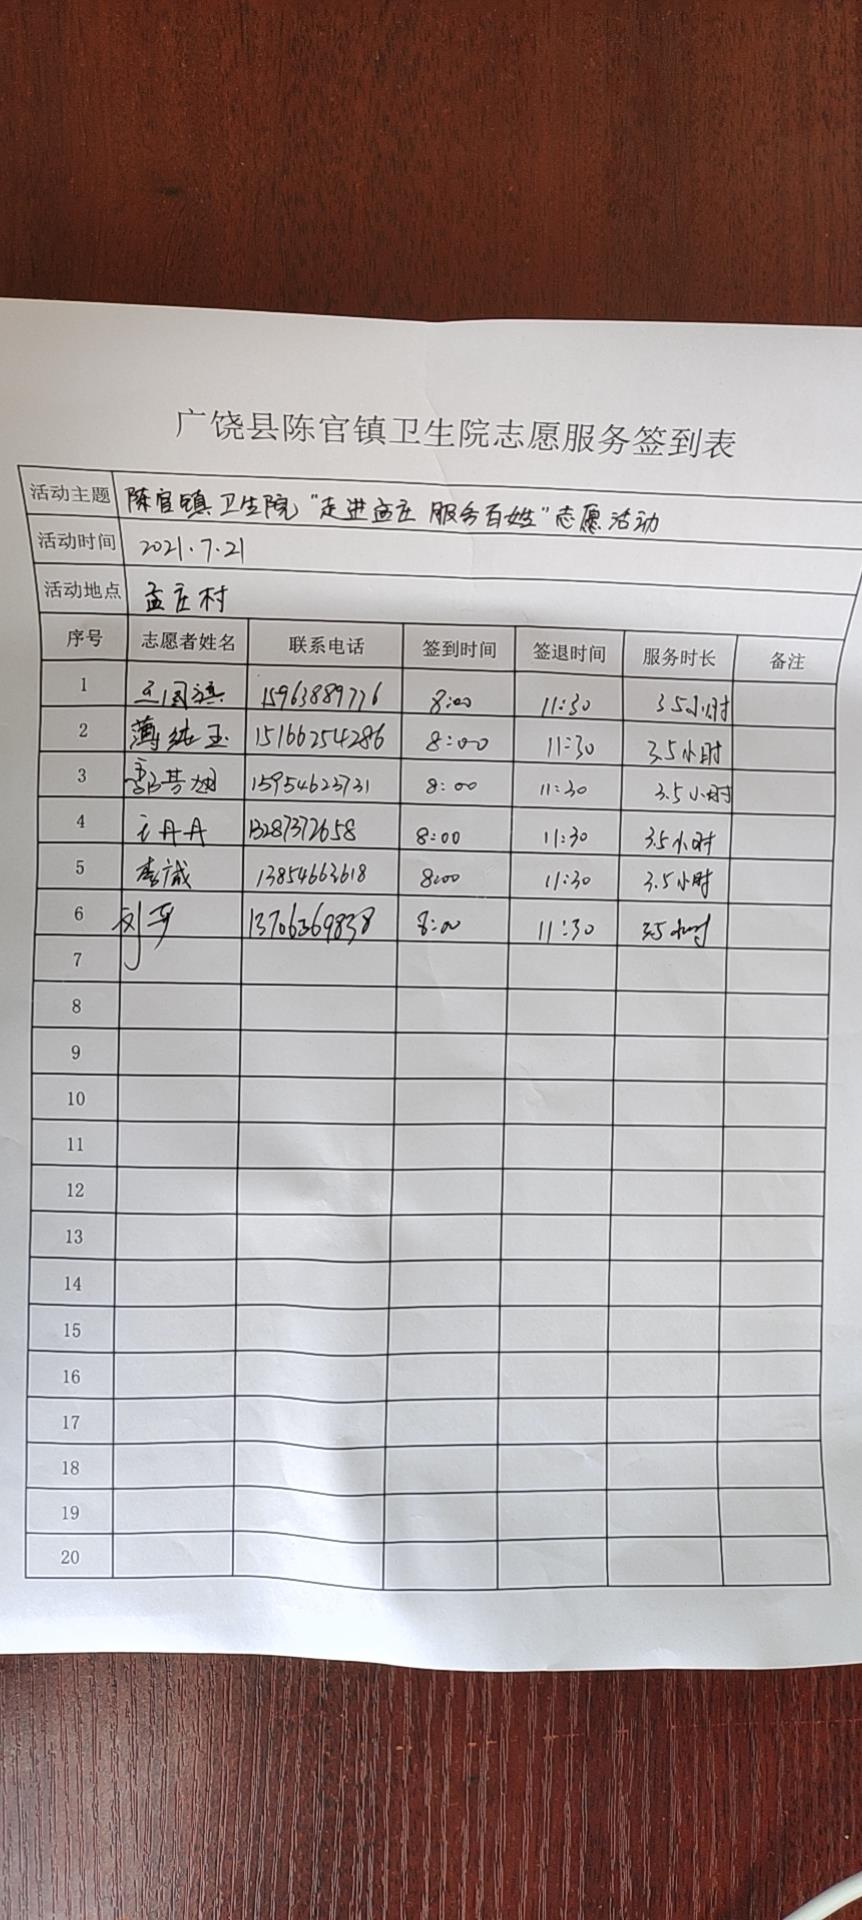 广饶县陈官镇卫生院志愿服务签到表
活动主题 陈官镇卫生院“走进孟庄 服务百姓”志愿活动
活动时间 2021.7.21
活动地点 孟庄村
序号 志愿者姓名 联系电话 签到时间 签退时间 服务时长 备注
1 王国旗 15963889776 8:00 11:30 3.5小时
2 薄纯玉 15166254286 8:00 11:30 3.5小时
3 15954623731 8:00 11:30 3.5小时
4 13287372658 8:00 11:30 3.5小时
5 李诚 13854663618 8:00 11:30 3.5小时
6 13706369838 8:00 11:30 3.5小时
7
8
9
10
11
12
13
14
15
16
17
18
19
20